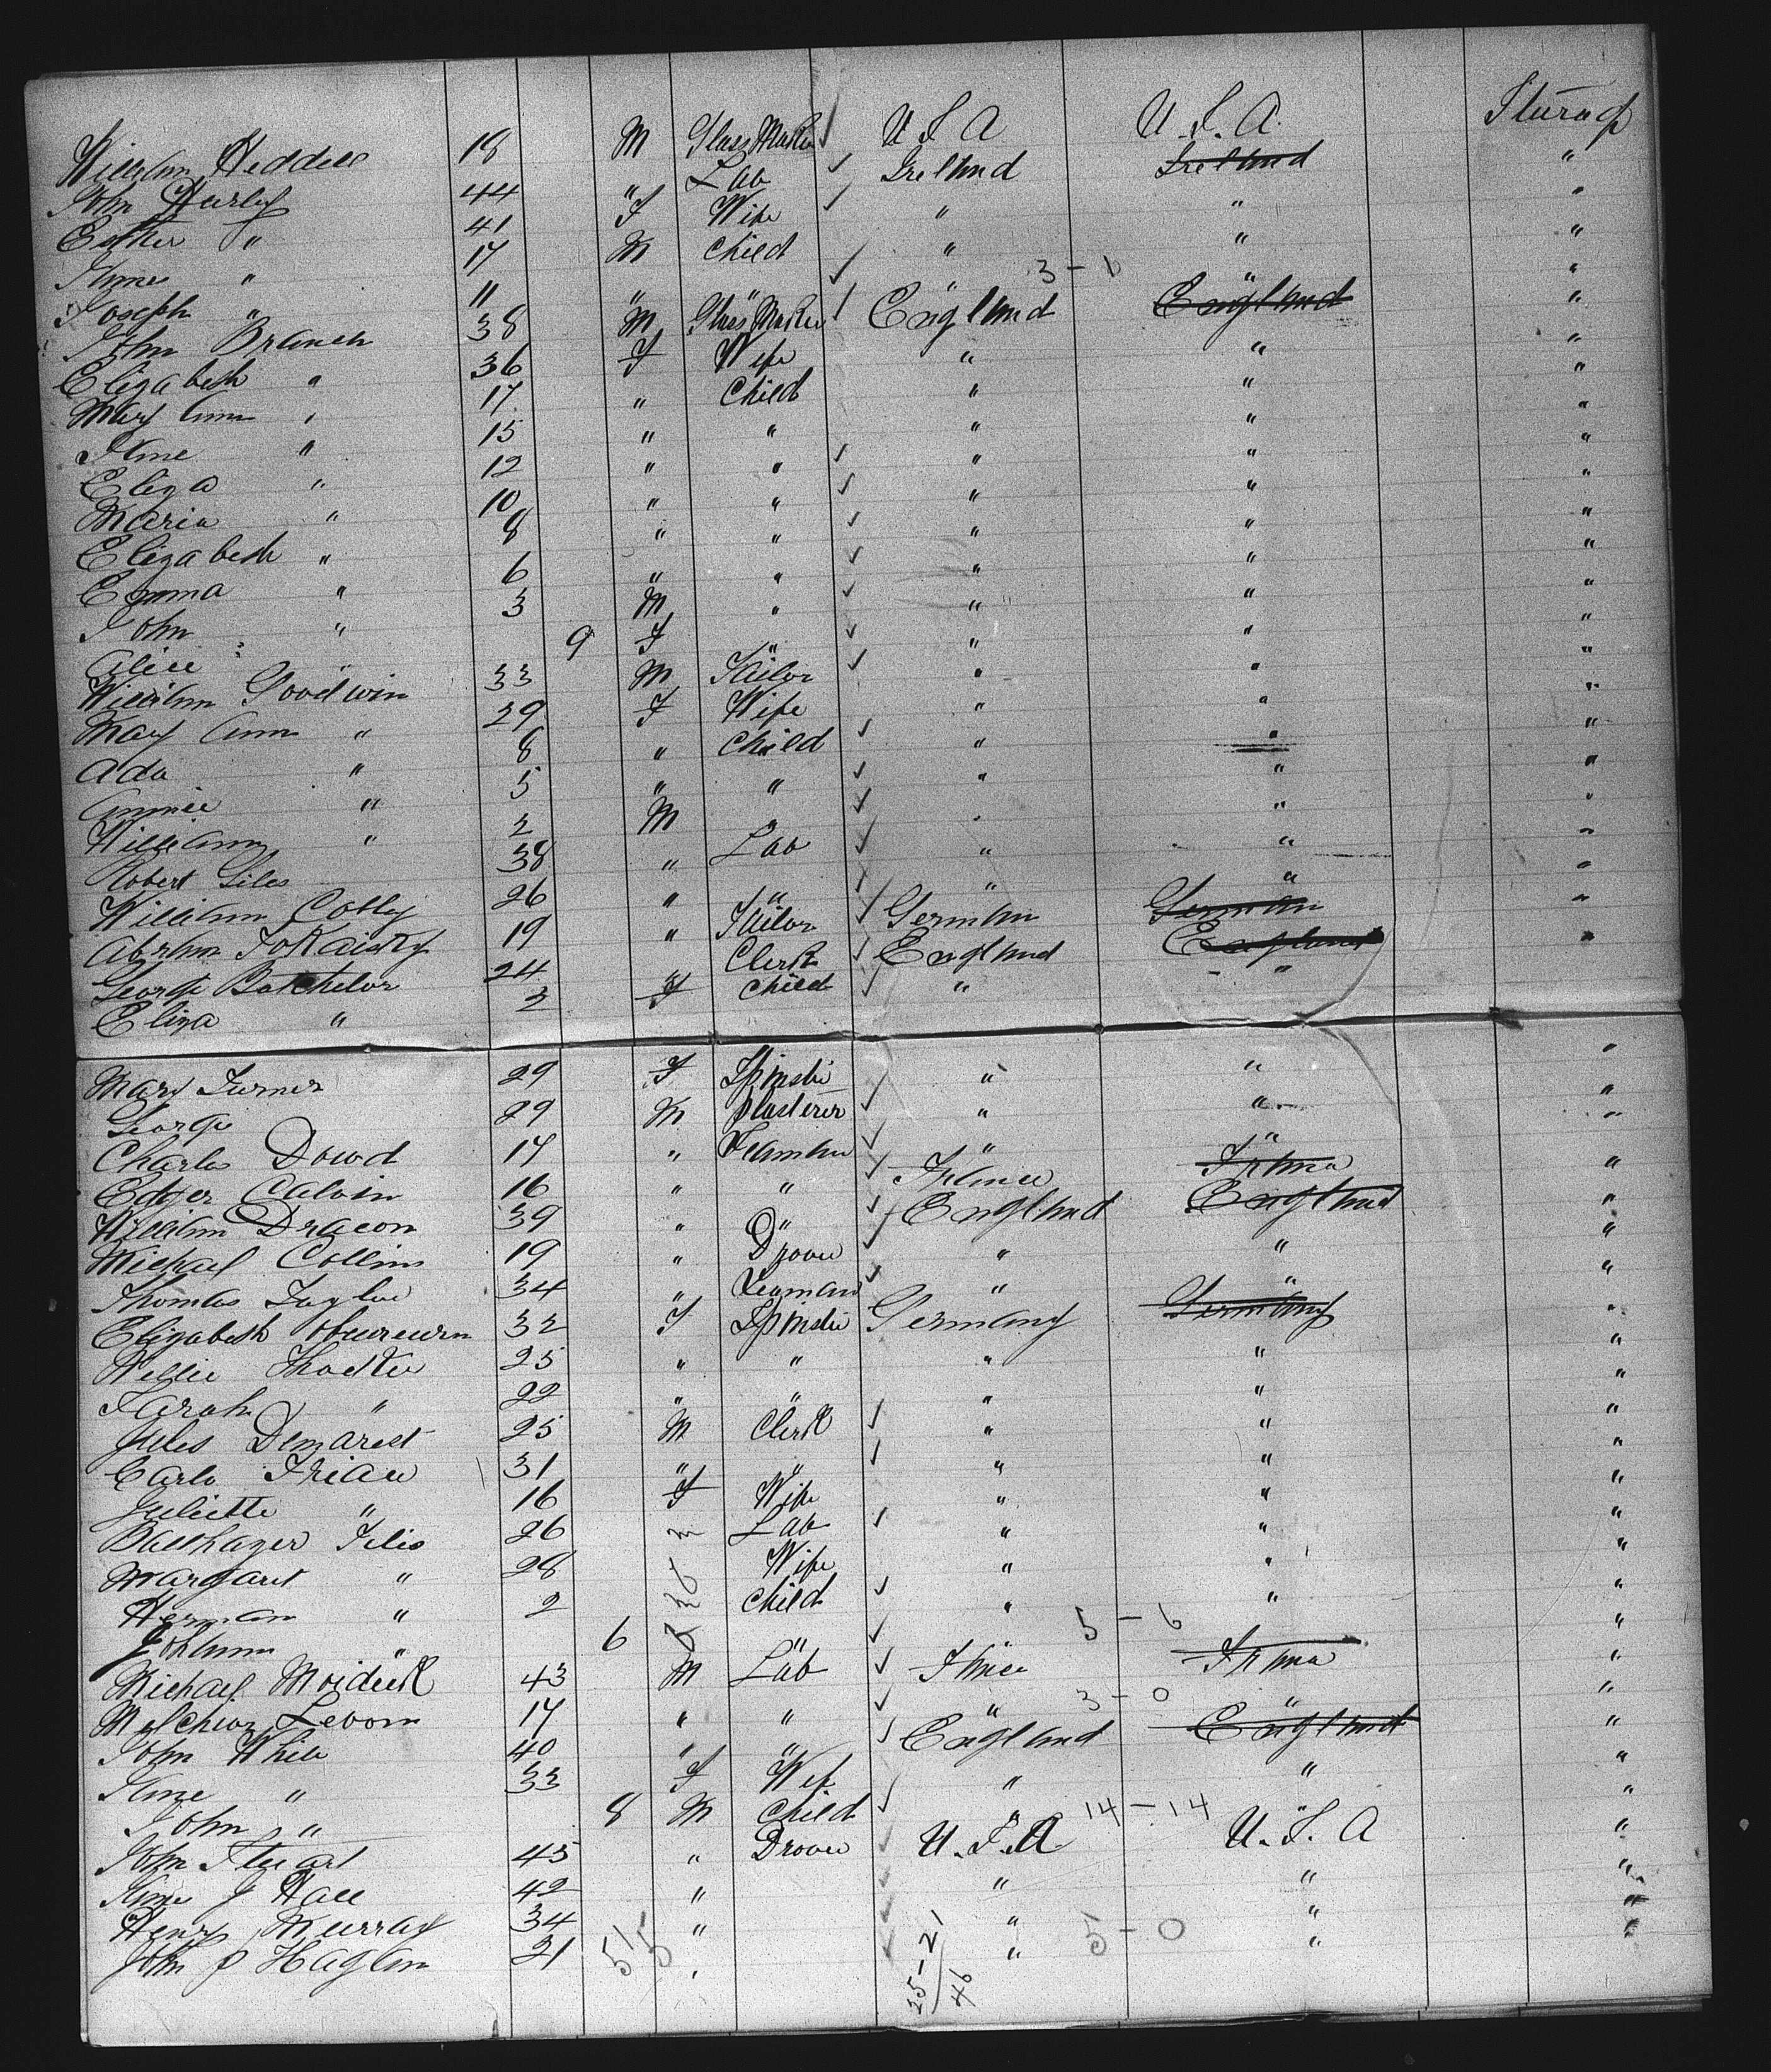 William Heddell 18 M Glass Maker ✓ U.S.A U.S.A. Sturagf
John Hurley 44 " Lab ✓ Ireland Ireland "
Esther " 41 F Wife ✓ " " "
James " 17 M Child " " "
Joseph " 11 " " ✓ " " "
John Branch 38 M Glass Maker ✓ England England "
Elizabeth " 36 F Wife " " "
Mary Ann " 17 " Child " " "
Jane " 15 " " " " "
Eliza " 12 " " ✓ " " "
Maria " 10 " " ✓ " " "
Elizabeth " 8 " " ✓ " " "
Emma " 6 " " ✓ " " "
John " 3 M " ✓ " " "
Alice " 9 F " ✓ " " "
William Goodwin 33 M Tailor ✓ " " "
Mary Ann " 29 F Wife " " "
Ada " 8 " Child ✓ " " "
Annie " 5 " " ✓ " " "
William " 2 M " ✓ " " "
Robert Giles 38 " Lab ✓ " " "
William Colley 26 " " ✓ " " "
19 " Tailor ✓ German German "
George Batchelor 24 Clerk ✓ England England "
Eliza " 2 F Child ✓ " "
Mary Turner 29 F Spinster ✓ " " "
George 29 M Plasterer ✓ " " "
Charles Dowd 17 " ✓ " " "
Edger Calvin 16 " " ✓ "
William Dracon 39 " " ✓ England England "
Michael Collins 19 " Drover ✓ " " "
Thomas Taylor 34 " ✓ " " "
Elizabeth 32 F Spinster Germany Germany "
25 " " " " "
Sarah " 22 " " " " "
Jules Demarest 25 M Clerk ✓ " " "
Carlo 31 " " ✓ " " "
Juliette " 16 F Wife " " "
Balthazer 26 m Lab ✓ " " "
Margaret " 28 Wife " " "
Herman " 2 Child ✓ " " "
Johann " 6 " ✓ "
Michael 43 M Lab ✓ "
17 " " ✓ " " "
John While 40 " " ✓ England England "
Jane " 33 F Wife " " "
John " 8 M Child ✓ " " "
John Stuart 45 " Drover ✓ U.S.A U.S.A "
James J Hall 42 " ✓ " " "
Henry Murray 34 " ✓ " " "
John P 21 " ✓ " " "
3 – 1
5 – 6
3 – 0
14 – 14
5 – 0
51 5
25 – 21
46